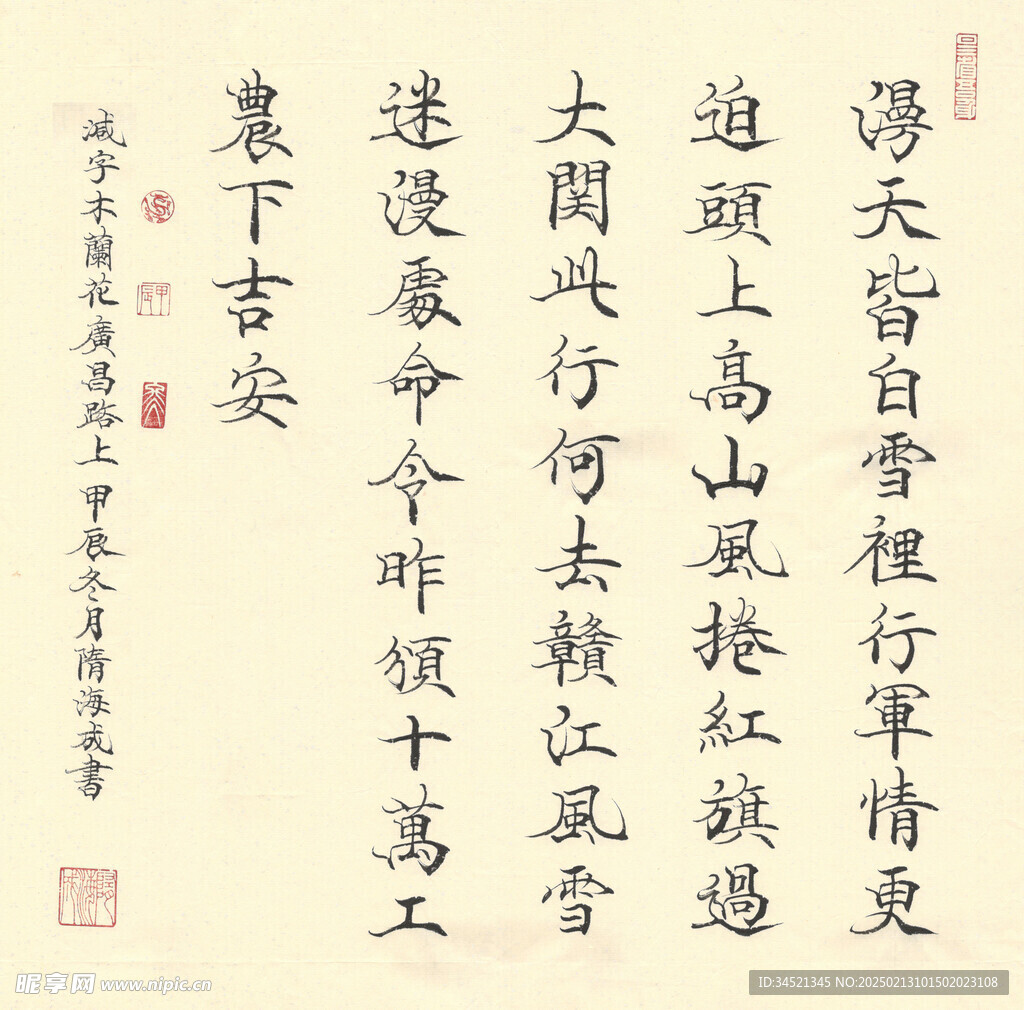 漫天皆白雪裡行軍情更
迫頭上高山風捲紅旗過
大関此行何去贛江風雪
迷漫處命令昨頒十萬工
農下吉安
減字木蘭花廣昌路上甲辰冬月隋海成書
甲辰
昵享网 www.nipic.cn
ID:34521345 NO:20250213101502023108